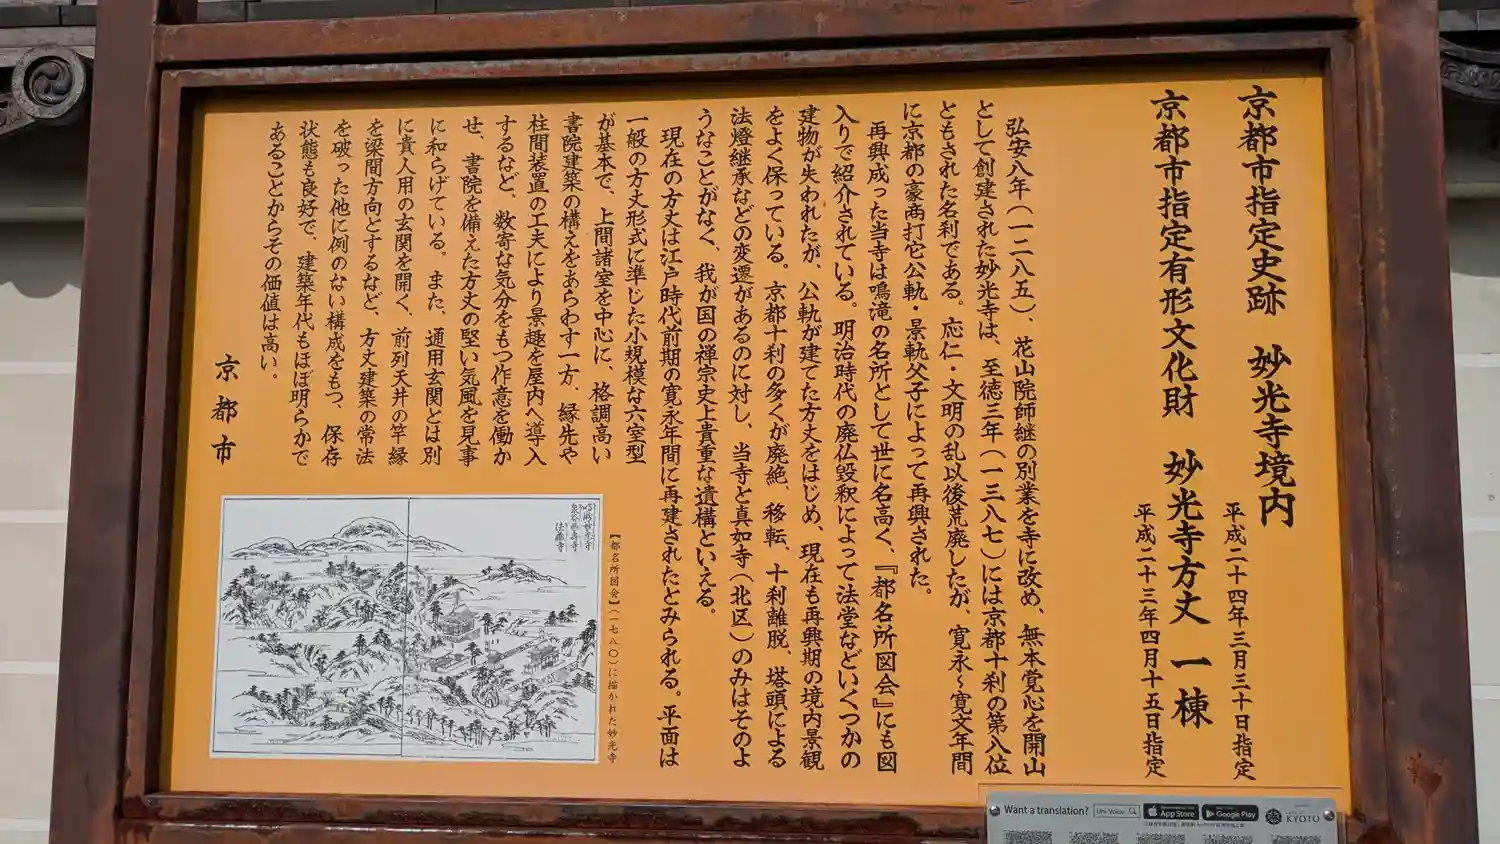 京都市指定史跡　妙光寺境内
平成二十四年三月三十日指定
京都市指定有形文化財　妙光寺方丈　一棟
平成二十三年四月十五日指定
弘安八年（一二八五）、花山院師継の別業を寺に改め、無本覚心を開山
として創建された妙光寺は、至徳三年（一三八七）には京都十刹の第八位
ともされた名刹である。応仁・文明の乱以後荒廃したが、寛永～寛文年間
に京都の豪商打它公軌・景軌父子によって再興された。
再興成った当寺は鳴滝の名所として世に名高く、『都名所図会』にも図
入りで紹介されている。明治時代の廃仏毀釈によって法堂などいくつかの
建物が失われたが、公軌が建てた方丈をはじめ、現在も再興期の境内景観
をよく保っている。京都十刹の多くが廃絶、移転、十刹離脱、塔頭による
法燈継承などの変遷があるのに対し、当寺と真如寺（北区）のみはそのよ
うなことがなく、我が国の禅宗史上貴重な遺構といえる。
現在の方丈は江戸時代前期の寛永年間に再建されたとみられる。平面は
一般の方丈形式に準じた小規模な六室型
が基本で、上間諸室を中心に、格調高い
書院建築の構えをあらわす一方、縁先や
柱間装置の工夫により景趣を屋内へ導入
するなど、数寄な気分をもつ作意を働か
せ、書院を備えた方丈の堅い気風を見事
に和らげている。また、通用玄関とは別
に貴人用の玄関を開く、前列天井の竿縁
を梁間方向とするなど、方丈建築の常法
を破った他に例のない構成をもつ、保存
状態も良好で、建築年代もほぼ明らかで
あることからその価値は高い。
京都市
【都名所図会】（一七八〇）に描かれた妙光寺
鳴瀧妙光寺
法蔵寺
Want a translation?
Uni-Voice
App Store
Google Play
KYOTO